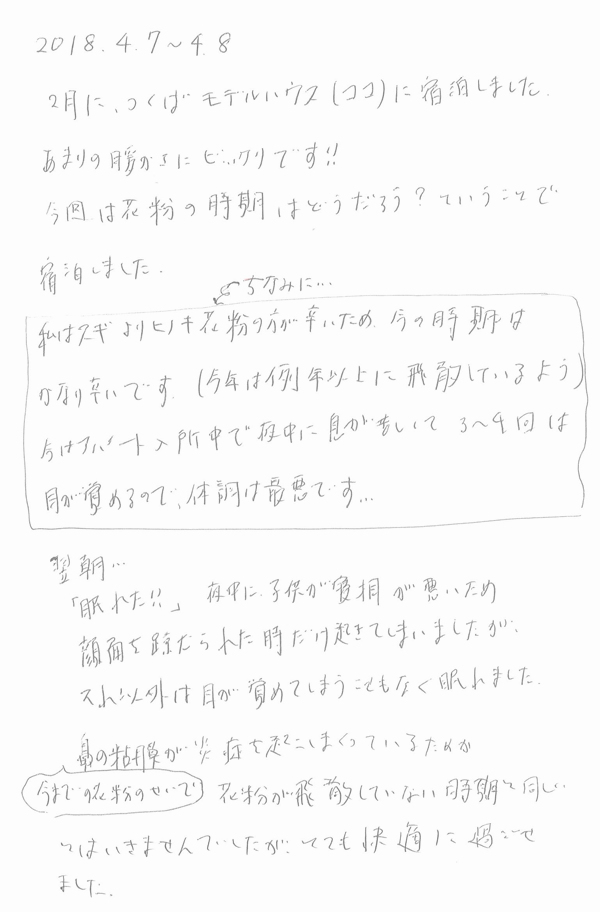 2018.4.7～4.8
2月に、つくばモデルハウス(ココ)に宿泊しました。
あまりの暖かさにビックリです!!
今回は花粉の時期はどうだろう？ということで
宿泊しました。
ちなみに…
私はスギよりヒノキ花粉の方が辛いため、今の時期は
かなり辛いです。(今年は例年以上に飛散しているよう)
今はアパート入所中で夜中に息が苦しくて3～4回は
目が覚めるので、体調は最悪です…
翌朝…
「眠れた!!」夜中に子供が寝相が悪いため
顔面を蹴られた時だけ起きてしまいましたが、
それ以外は目が覚めてしまうこともなく眠れました。
鼻の粘膜が炎症を起こしまくっているためか
今までの花粉のせいで
花粉が飛散していない時期と同じ
とはいきませんでしたが、とても快適に過ごせ
ました。